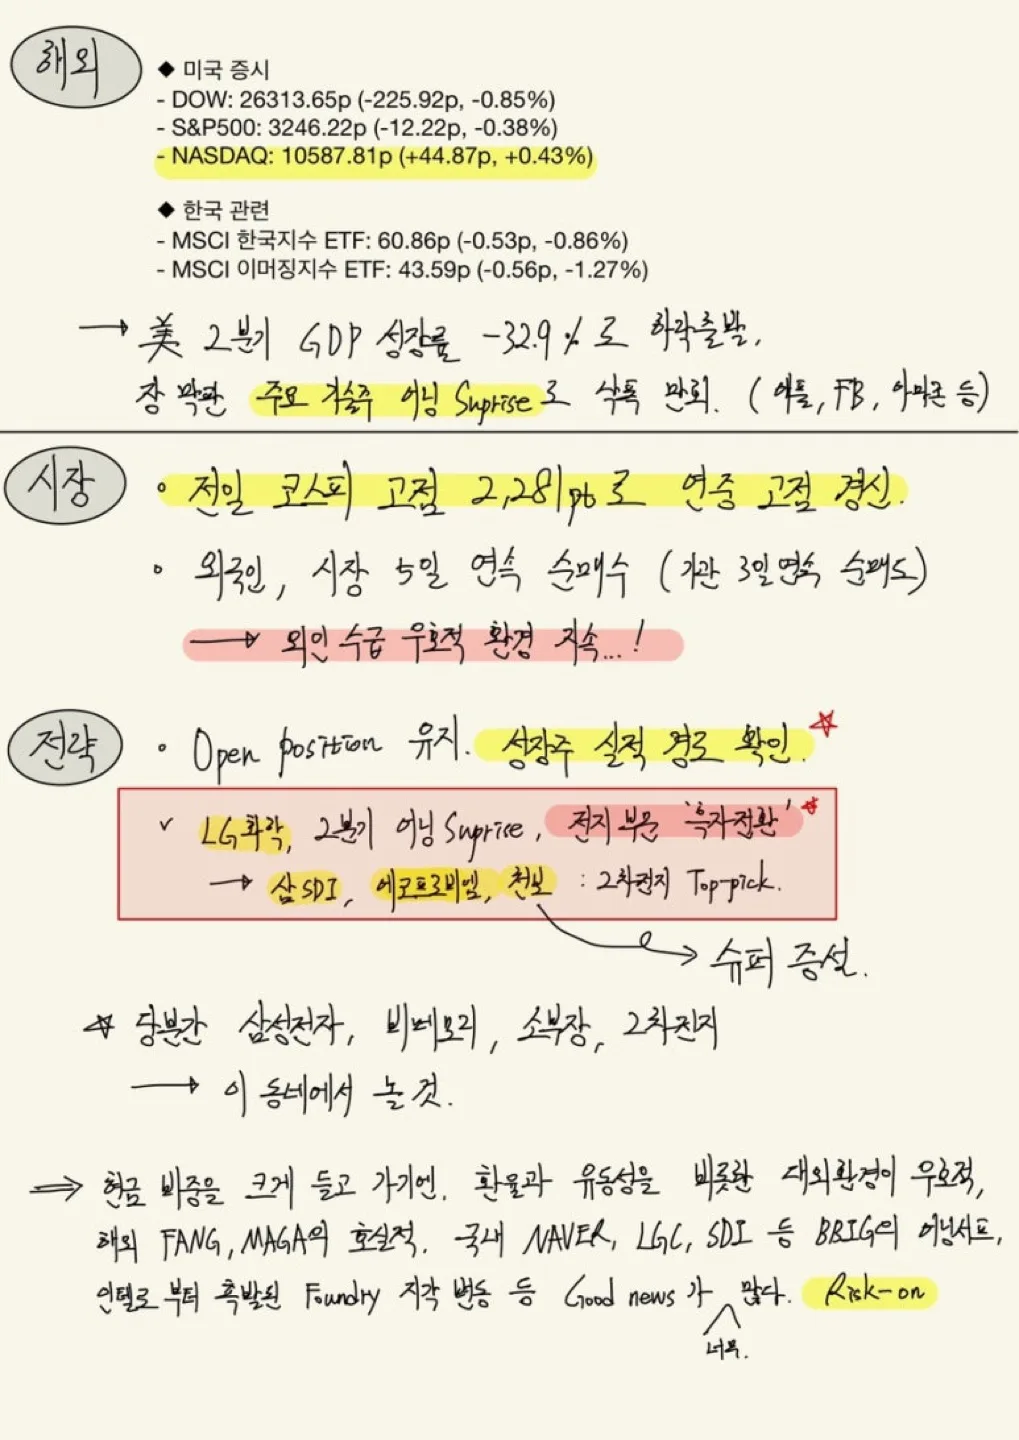 해외
◆ 미국 증시
- DOW: 26313.65p (-225.92p, -0.85%)
- S&P500: 3246.22p (-12.22p, -0.38%)
- NASDAQ: 10587.81p (+44.87p, +0.43%)
◆ 한국 관련
- MSCI 한국지수 ETF: 60.86p (-0.53p, -0.86%)
- MSCI 이머징지수 ETF: 43.59p (-0.56p, -1.27%)
→ 美 2분기 GDP 성장률 -32.9%로 하락출발,
장 막판 주요 기술주 어닝 Suprise로 낙폭 만회. (애플, FB, 아마존 등)
시장
◦ 전일 코스피 고점 2,281pt로 연중 고점 경신.
◦ 외국인, 시장 5일 연속 순매수 (기관 3일 연속 순매도)
→ 외인 수급 우호적 환경 지속...!
전략
◦ Open position 유지. 성장주 실적 경로 확인. ☆
v LG화학, 2분기 어닝 Suprise, 전지 부문 '흑자전환' ☆
→ 삼SDI, 에코프로비엠, 천보 : 2차전지 Top-pick.
→ 슈퍼 증설.
☆ 당분간 삼성전자, 비메모리, 소부장, 2차전지
→ 이 동네에서 놀 것.
⇒ 현금 비중을 크게 들고 가기엔. 환율과 유동성을 비롯한 대외환경이 우호적,
해외 FANG, MAGA의 호실적. 국내 NAVER, LGC, SDI 등 BBIG의 어닝서프,
인텔로부터 촉발된 Foundry 지각 변동 등 Good news가 많다. Risk-on
너무.